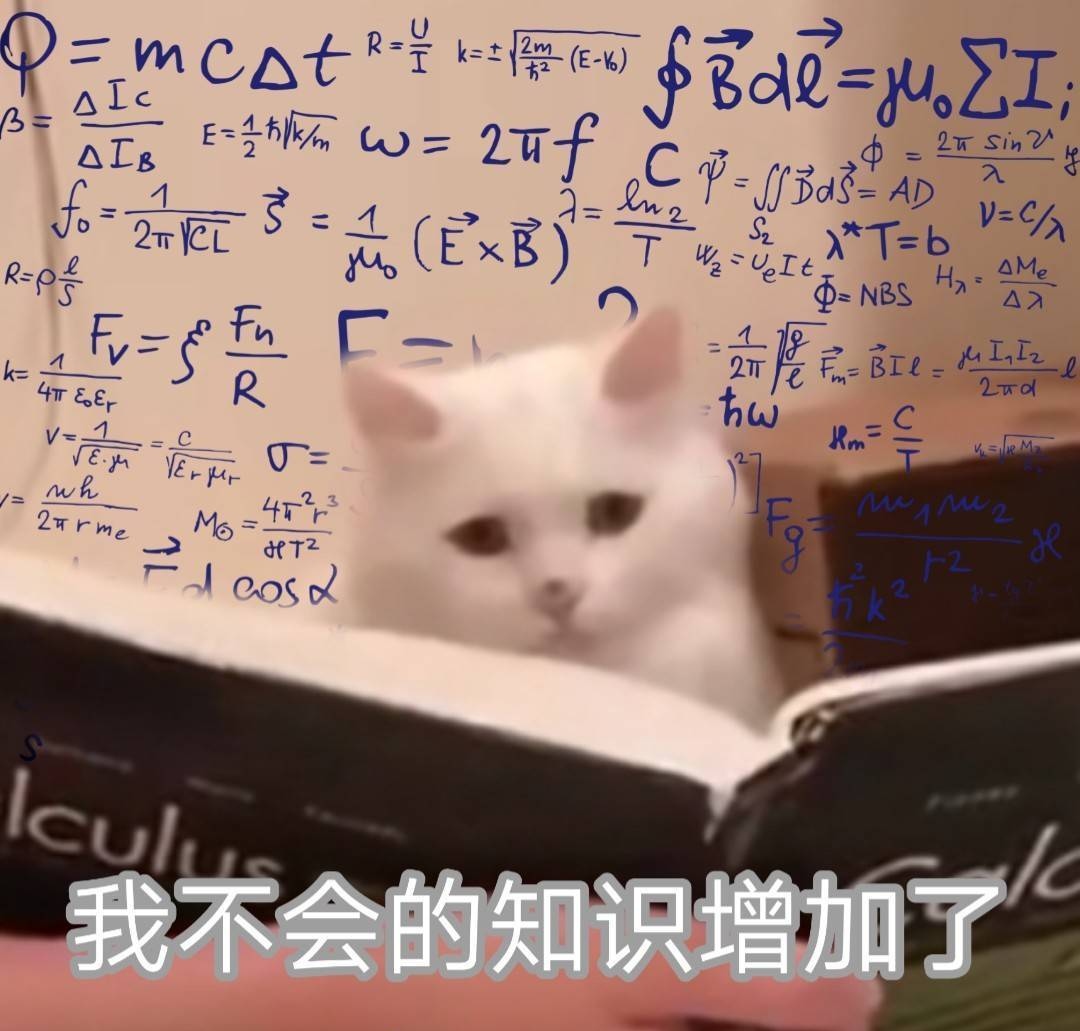 Q = mcΔt
R = U/I
k = ± √(2m/ħ² (E-V₀))
∮ B⃗ dℓ⃗ = μ₀ ∑ Iⱼ
β = ΔI_C/ΔI_B
E = 1/2 ħ √(k/m)
ω = 2πf
C
ψ⃗ = ∬ D⃗ dS⃗ = AD
S₂
ϕ = 2π sin ϑ/λ y
f₀ = 1/(2π√CL)
S⃗ = 1/μ₀ (E⃗ × B⃗)
λ = ln 2/T
ν = C/λ
W_z = U_e I t
λ*T = b
R = ρ ℓ/S
Φ = NBS
H_λ = ΔM_e/Δλ
F_v = ξ F_n/R
= 1/2π √(g/ℓ)
F⃗_m = B⃗ I ℓ = μ I₁I₂/2πd ℓ
k = 1/(4π ε₀ε_r)
= ħω
v = 1/√(ε·μ) = c/√(ε_r μ_r)
σ =
ϰ_m = C/T
)²]
= nh/(2π r m_e)
M_⊙ = 4π²r³/(ϰT²)
F_g = m₁m₂/r² ϰ
d cos α
= ħ²k²/2
S
lculus
Calc
我不会的知识增加了